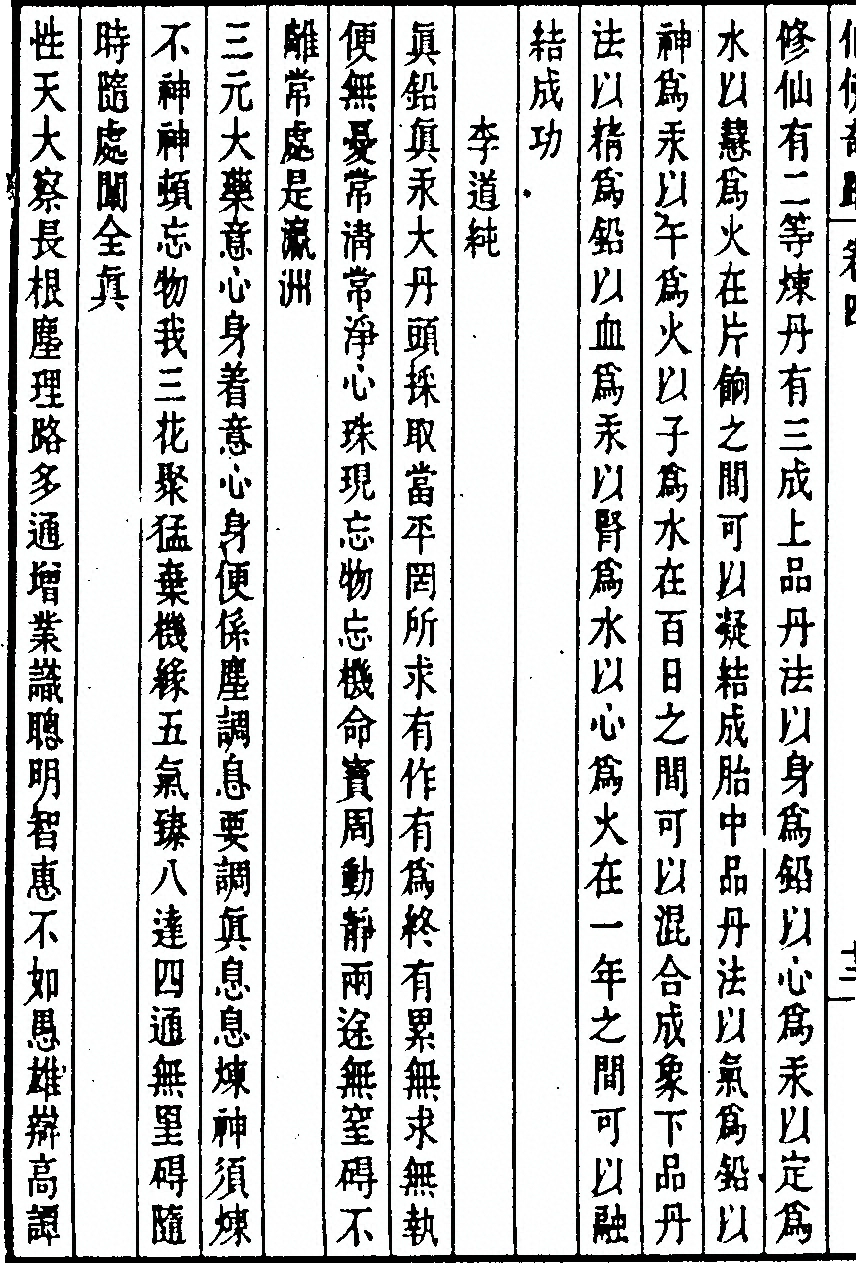 卷四
十二
修仙有二等煉丹有三成上品丹法以身爲鉛以心爲汞以定爲
水以慧爲火在片餉之間可以凝結成胎中品丹法以氣爲鉛以
神爲汞以午爲火以子爲水在百日之間可以混合成象下品丹
法以精爲鉛以血爲汞以腎爲水以心爲火在一年之間可以融
結成功
李道純
眞鉛眞汞大丹頭採取當不罔所求有作有爲終有累無求無執
便無憂常淸常淨心珠現忘物忘機命寳周動靜兩途無窒碍不
離常處是瀛洲
三元大藥意心身着意心身便係塵調息要調眞息息煉神須煉
不神神頓忘物我三花聚猛棄機緣五氣臻八達四通無罣碍隨
時隨處闡全眞
性天大察長根塵理路多通增業識聰明智惠不如愚雄辯高譚